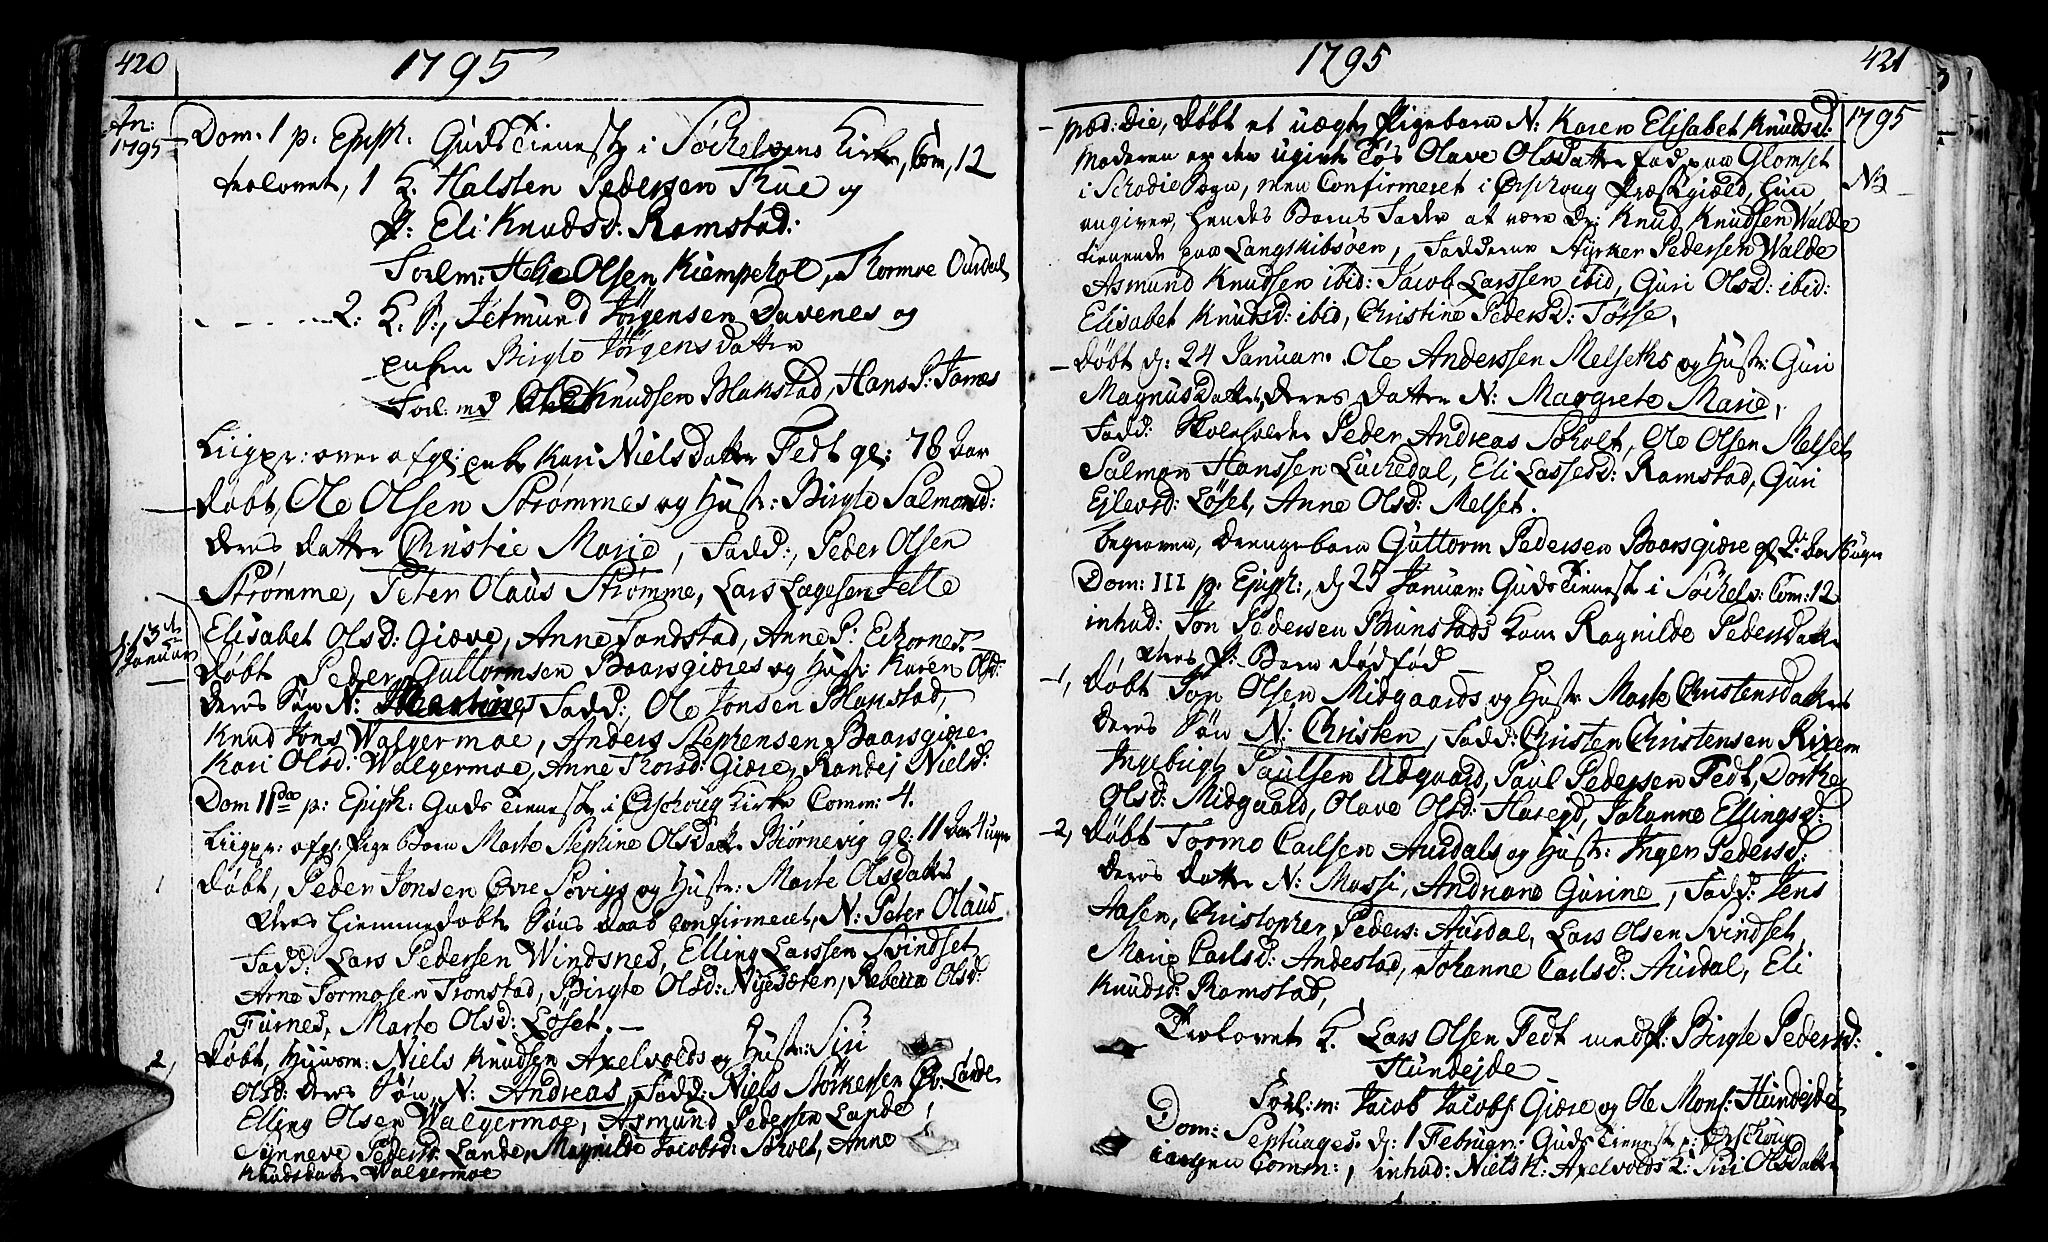 420
1795
An: 1795
Dom: 1 p: Epiph: Guds Tieneste i Søchelvens Kirke, Com, 12
trolovet, 1 K. Halsten Pedersen Kue og
P: Eli Knudsd: Ramstad:
Forl.m: Ole Olsen Kiempehol, Thormoe Ousdal
2: K. P:, Jetmund Jørgensen Davenes og
enken Birgte Jørgensdatter
Forl: md Knudsen Blakstad, Hans J: Jarnes
Liigpr: over afgl: enke Kari Nielsdatter Fedt gl: 78 Aar
Døbt, Ole Olsen Strømmes og Hustr: Birgte Salmonsd:
deres datter Christie Marie, Fadd:, Peder Olsen
Strømme, Peter Olaus Strømme, Lars Lagesen Felle
Elisabet Olsd: Giære, Anne Sandstad, Anne P: Eikornes
d 13de Januari
Døbt Peder Guttormsen Baarsgiæres og Hustr: Karen Olsd:
deres Søn N: Fadd:, Ole Jonsen Blakstad,
Knud Jons Walgermoe, Anders Stephensen Baarsgiære
Kari Olsd: Walgermoe, Anne Thorsd: Giære, Randej Nielsd:
Dom IIdæ p: Epiph: Guds Tieneste i Ørschoug Kirke Comm: 4.
Liigpr: afgl: Pige Barn Marte Stephine Olsdatter Biørnevig gl: 11 Aar 4 uger
1 Døbt, Peder Jonsen Øvre Søvigs og Hustr: Marte Olsdatters
deres hiemmedøbte Søns daab confirmeret, N: Peter Olaus
Fadd: Lars Pedersen Windsnes, Elling Larssen Svindset
Arne Tormosen Tronstad, Birgte Olsd: Nysæten, Rebecca Olsd:
Furnes, Marte Olsd: Løset.
2, Døbt, Huusm: Niels Knudsen Axelvolds og Hustr: Siri
Olsd: deres Søn, N: Andreas, Fadd: Niels Størkersen Lande
Elling Olsen Walgermoe, Asmund Pedersen Lande
Synneve Pedersd: Lande, Magnilde Jacobsd: Søholt, Anne
Knudsdatter Walgermoe
1795
421
1795
præd: die, døbt et uægte Pigebarn N: Karen Elisabet Knudsd:
Moderen er den ugivte Tøs Olave Olsdatter fød paa Glomset
i Schodie Sogn, men Confirmeret i Ørschoug Præstegield, hun
N:
angiver, hendes Barns Fader at være Dr: Knud Knudsen Walde
tienende paa Langskibsøen, Fadderne Styrker Pedersen Walde
Asmund Knudsen ibid: Jacob Larssen ibid, Guri Olsd: ibid:
Elisabet Knudsd: ibid, Christine Pedersd: Tørse,
Døbt d: 24 Januar: Ole Anderssen Melseths og Hustr: Guri
Magnusdatter, deres datter N: Margrete Marie,
Fadd: Skoleholder Peder Andreas Søholt, Ole Olsen Melset
Salmon Hanssen Luchedal, Eli Lassesd: Ramstad, Guri
Eilevsd: Løset, Anne Olsd: Melset.
begraven, drengebarn Guttorm Pedersen Baarsgiære gl 2 Aar uger
Dom: III p: Epiph:, d 25 Januar: Guds Tieneste i Søchels: Com: 12
introd: Jon Pedersen Brunstads Kone Ragnilde Pedersdatter
deres P: Barn dødfød
1, Døbt Jon Olsen Midgaards og Hustr Marte Christensdatters
deres Søn N: Christen, Fadd: Christen Christensen Rixem
Ingebrigt Paulsen Udgaard, Paul Pedersen Fedt, Dorthe
Olsd: Midgaard, Olave Olsd: Hareid, Johanne Ellingsd:
2, Døbt Tormo Carlsen Ausdals og Hustr: Inger Pedersd:
deres datter N: Massi, Andriane Gurine, Fadd: Jens
Aasen, Christopher Peders: Ausdal, Lars Olsen Svindset
Marie Carlsd: Andestad, Johanne Carlsd: Ausdal, Eli
Knudsd: Ramstad,
Trolovet K. Lars Olsen Fedt med P: Birgte Pedersd:
Hundejde
Forl: m: Jacob Jacobs: Giære og Ole Mons: Hundejde
Dom: Septuages: d: 1 Februar: Guds Tieneste i Ørschoug
ingen Comm:, introd: Niels K: Axelvolds K: Siri Olsdatter